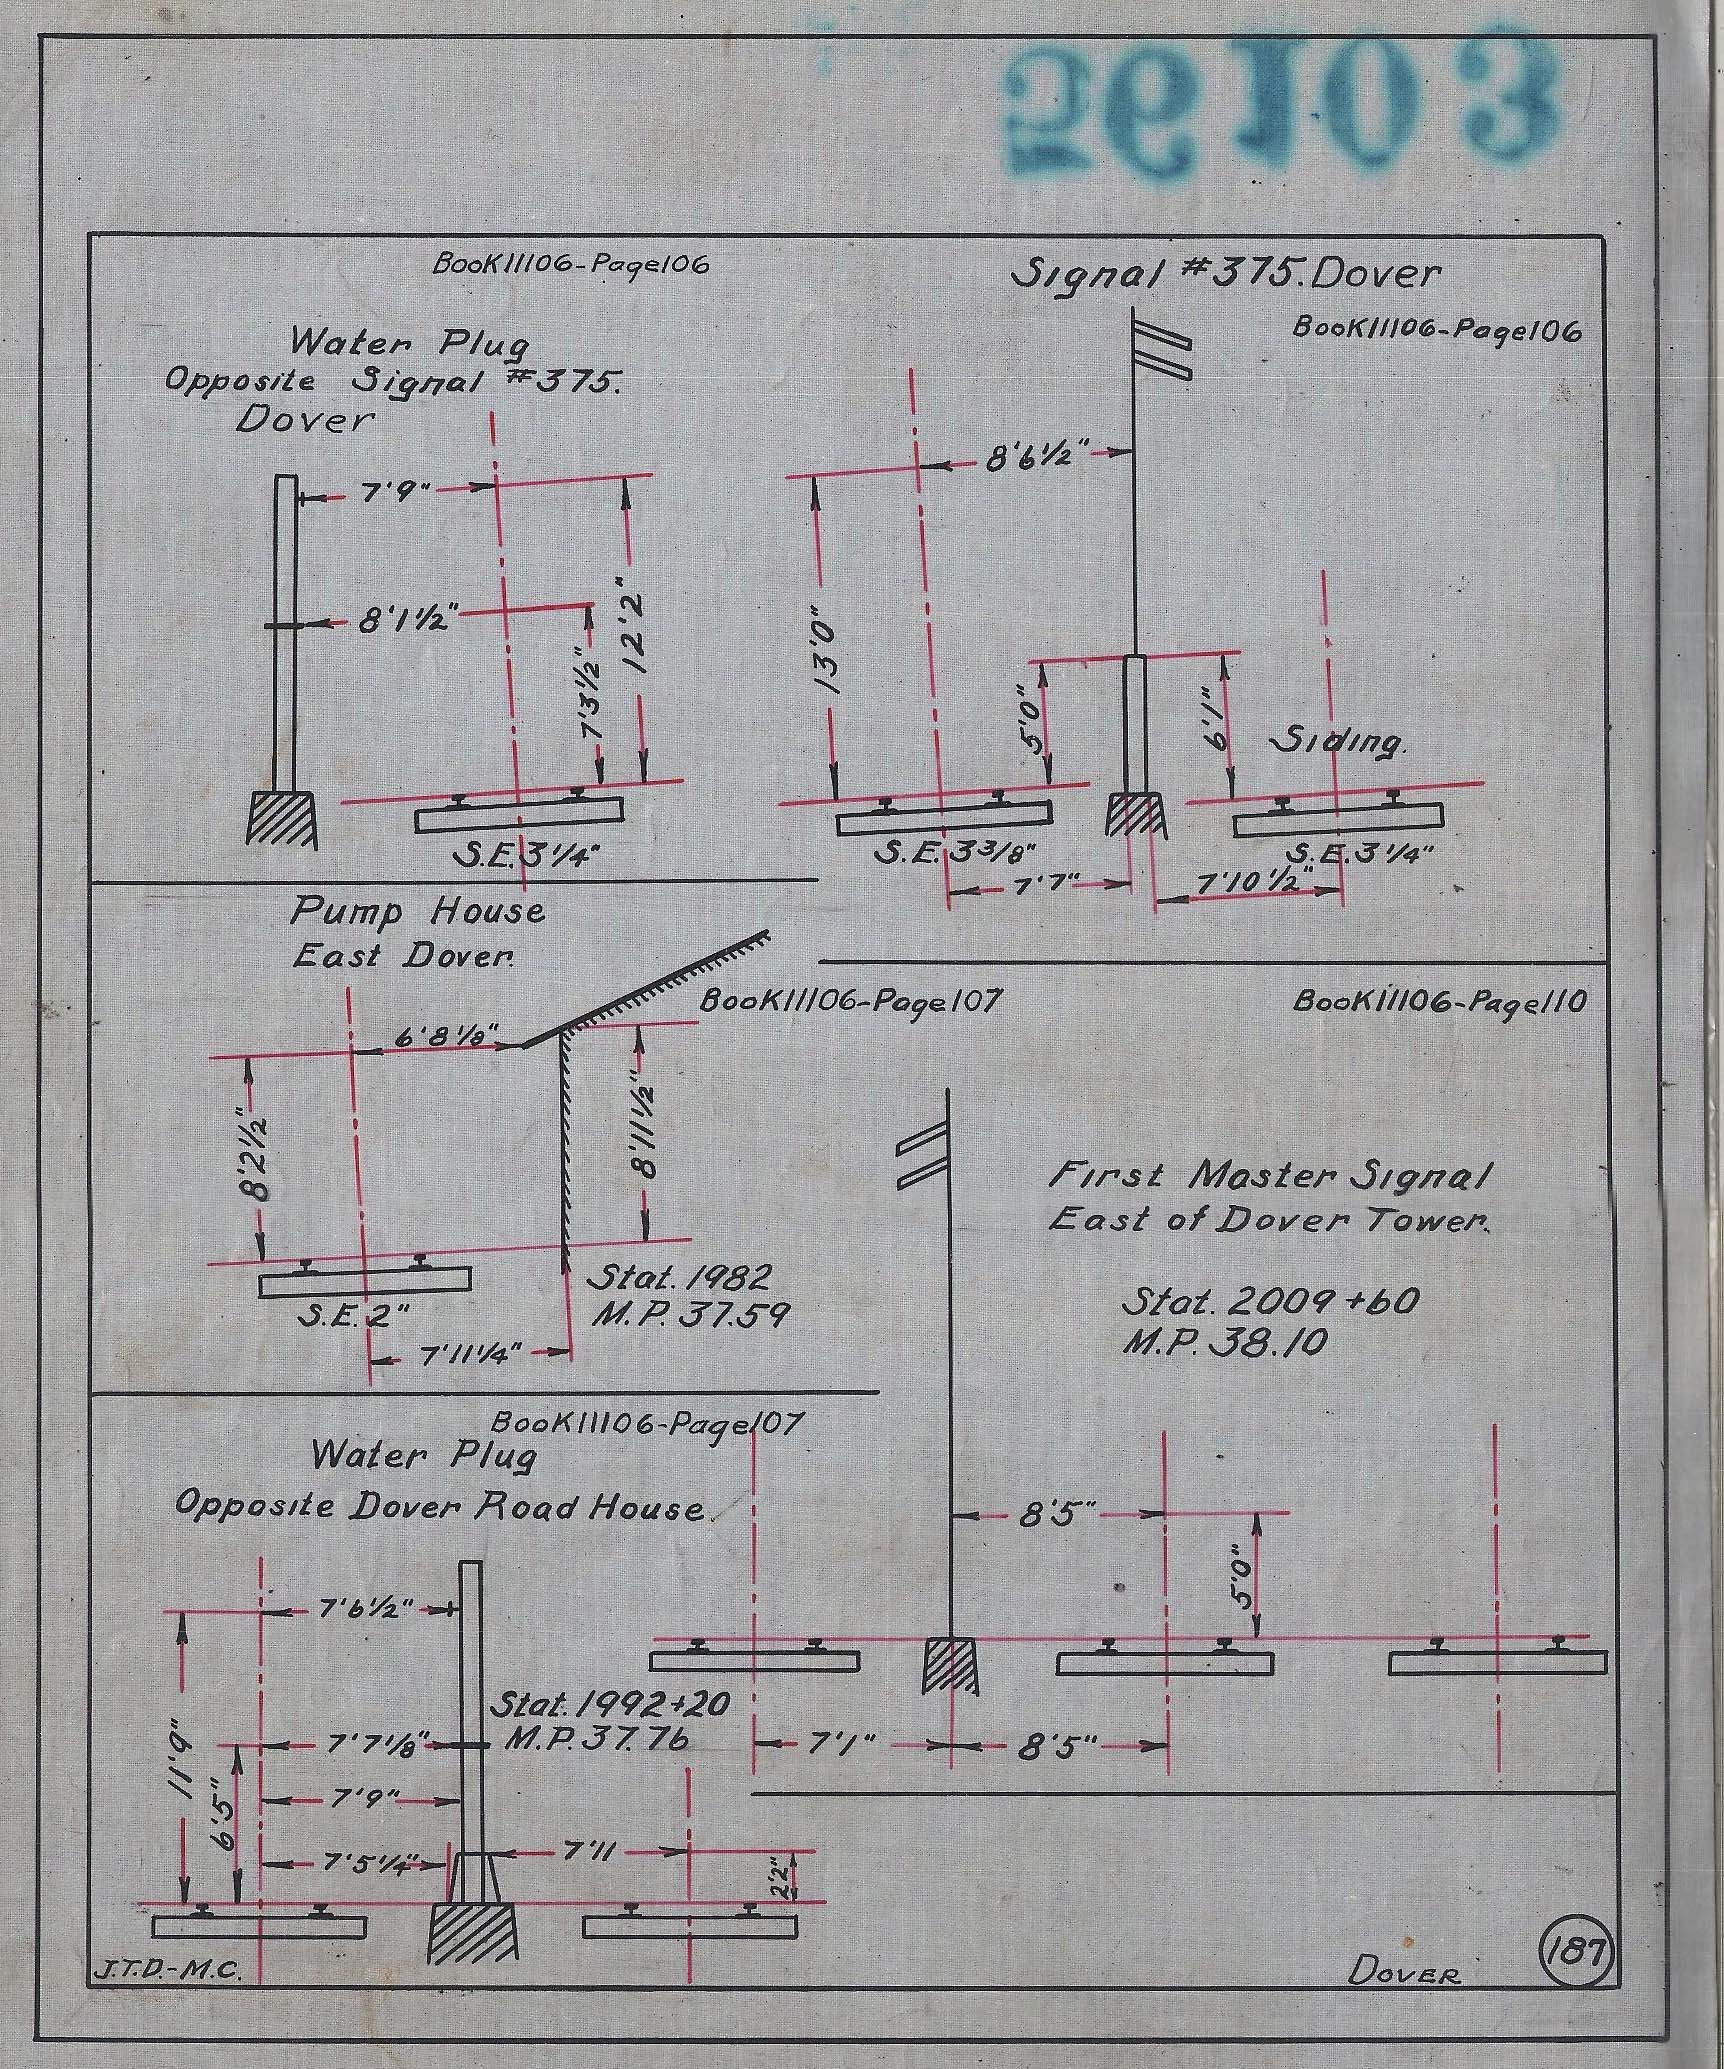 56103
BooK11106-Page106
Water Plug
Opposite Signal #375.
Dover
7'9"
8'1½"
7'3½"
12'2"
S.E.3¼"
Signal #375.Dover
BooK11106-Page106
8'6½"
13'0"
5'0"
6'1"
Siding.
S.E.3⅜"
S.E.3¼"
7'7"
7'10½"
Pump House
East Dover.
BooK11106-Page107
6'8⅛"
8'2½"
8'11½"
S.E.2"
Stat.1982
M.P.37.59
7'11¼"
BooK11106-Page110
First Master Signal
East of Dover Tower.
Stat. 2009+60
M.P.38.10
8'5"
5'0"
7'1"
8'5"
BooK11106-Page107
Water Plug
Opposite Dover Road House.
7'6½"
Stat.1992+20
M.P.37.76
11'9"
6'5"
7'7⅛"
7'9"
7'5¼"
7'11
2'2"
J.T.D.-M.C.
DOVER
187